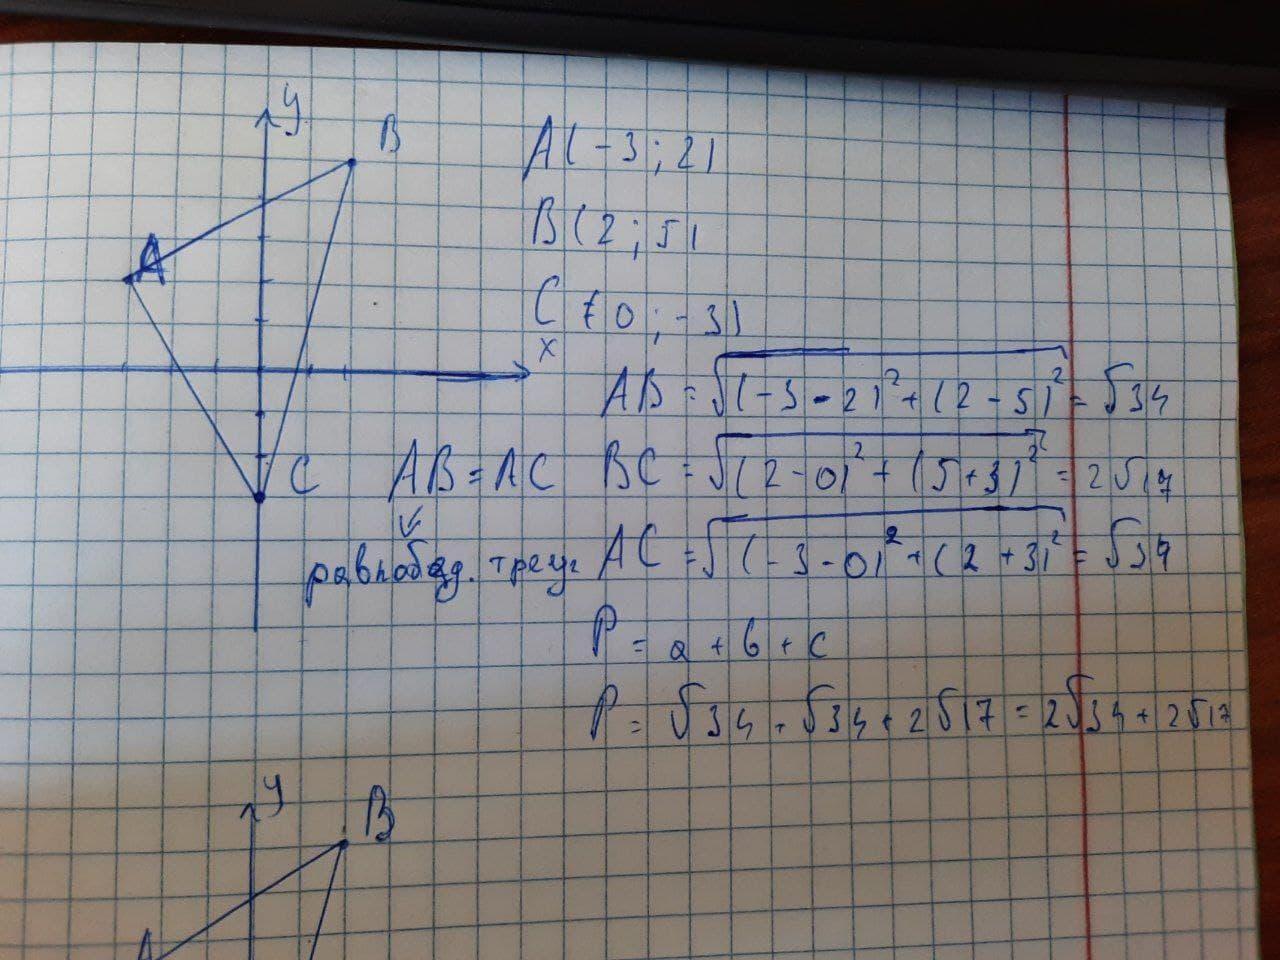 y
B
A(-3;2)
A
B(2;5)
C(0;-3)
x
AB=√(-3-2)²+(2-5)²=√34
C AB=AC BC=√(2-0)²+(5+3)²=2√17
равнобед. треуг AC=√(-3-0)²+(2+3)²=√34
P=a+b+c
P=√34+√34+2√17=2√34+2√17
y
B
A